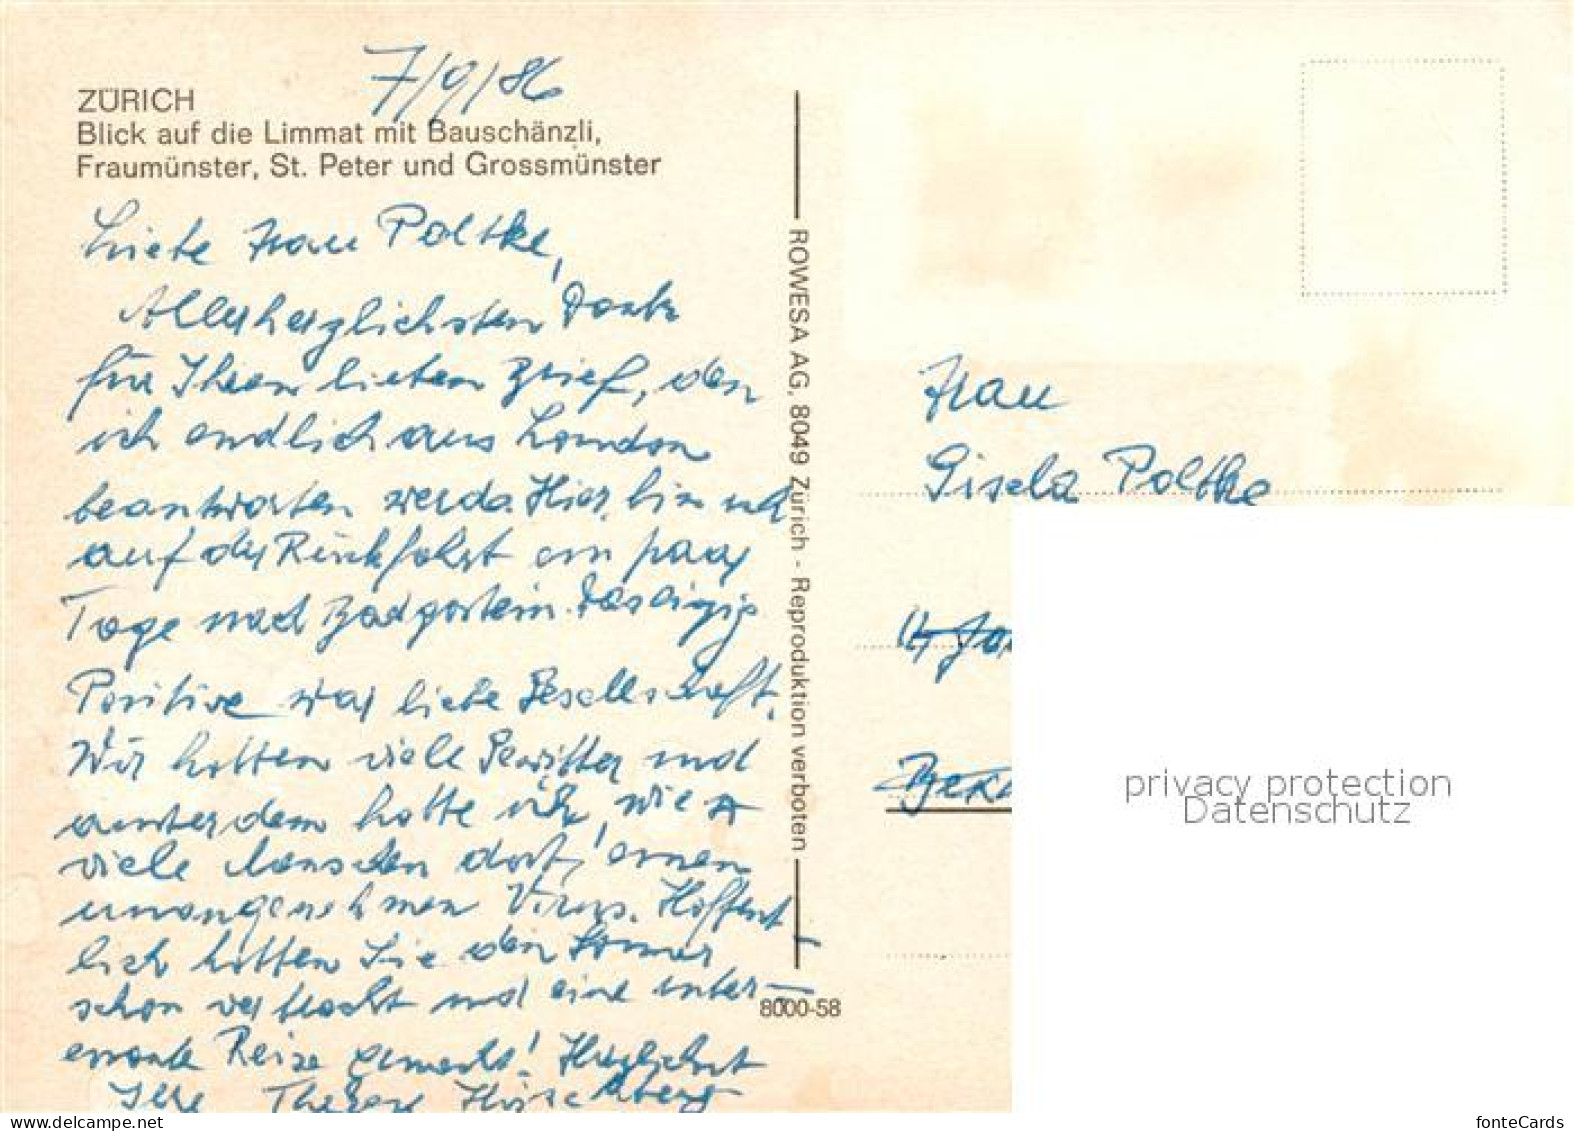 7/9/86
ZÜRICH
Blick auf die Limmat mit Bauschänzli,
Fraumünster, St. Peter und Grossmünster
Liebe Frau Poltke,
Allerherzlichsten Dank
für Ihren lieben Brief, den
ich endlich aus London
beantworten werde. Hier bin ich
auf der Rückfahrt ein paar
Tage nach Badgastein. Das einzig
Positive war liebe Gesellschaft.
Wir hatten viele Gewitter und
ausserdem hatte ich, wie
viele Menschen dort, einen
unangenehmen Virus. Hoffent-
lich hatten Sie den Sommer
schon verbracht und eine inter-
essante Reise gemacht! Herzlichst
Ihre Therese Hirschberg
ROWESA AG, 8049 Zürich - Reproduktion verboten
8000-58
Frau
Gisela Poltke
privacy protection
Datenschutz
fonteCards